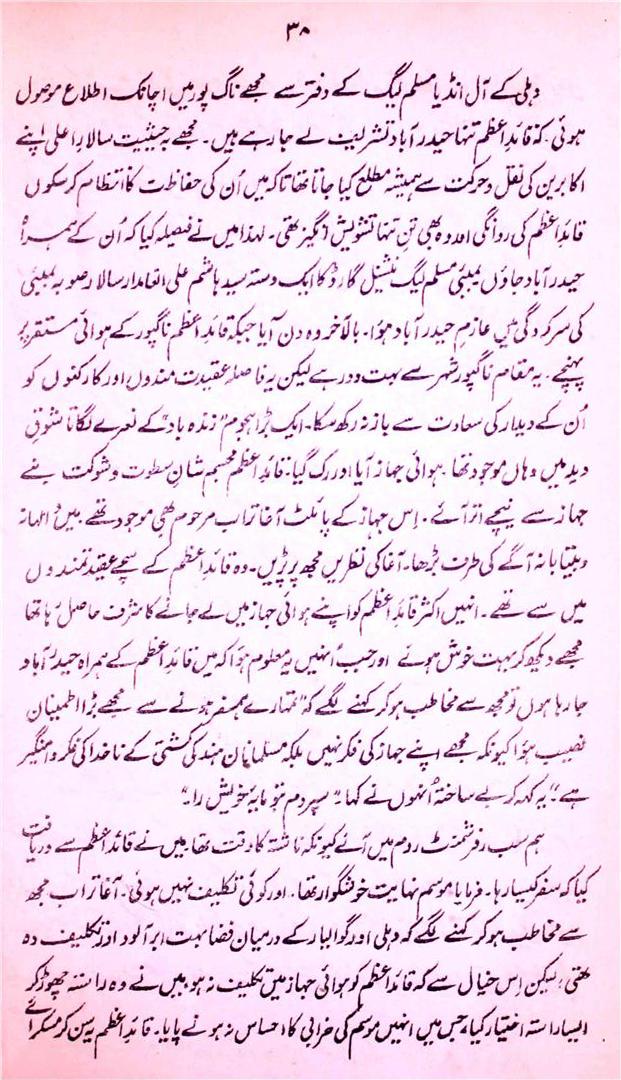 ۳۰
دہلی کے آل انڈیا مسلم لیگ کے دفتر سے مجھے ناگ پور میں اچانک اطلاع موصول
ہوئی۔ کہ قائد اعظم تنہا حیدر آباد تشریف لے جا رہے ہیں۔ مجھے بہ حیثیت سالار اعلی اپنے
اکابرین کی نقل و حرکت سے ہمیشہ مطلع کیا جاتا تھا تاکہ میں اُن کی حفاظت کا انتظام کر سکوں
قائد اعظم کی روانگی اور وہ بھی تن تنہا تشویش انگیز تھی۔ لہذا میں نے فیصلہ کیا کہ اُن کے ہمراہ
حیدر آباد جاؤں بمبئی مسلم لیگ نیشنل گارڈ کا ایک دستہ سید ہاشم علی انعامدار سالار صوبہ بمبئی
کی سرکردگی میں عازم حیدر آباد ہوا۔ بالآخر وہ دن آیا جبکہ قائد اعظم ناگپور کے ہوائی مستقر پر
پہنچے۔ یہ مقام ناگپور شہر سے بہت دور ہے لیکن یہ فاصلہ عقیدت مندوں اور کارکنوں کو
اُن کے دیدار کی سعادت سے باز نہ رکھ سکا۔ ایک بڑا ہجوم "زندہ باد" کے نعرے لگاتا شوق
دید میں وہاں موجود تھا۔ ہوائی جہاز آیا اور رک گیا۔ قائد اعظم مجسم شان سطوت و شوکت بنے
جہاز سے نیچے اتر آئے۔ اس جہاز کے پائلٹ آغا تراب مرحوم بھی موجود تھے میں والہانہ
و بیتابانہ آگے کی طرف بڑھا۔ آغا کی نظریں مجھ پر پڑیں۔ وہ قائد اعظم کے سچے عقیدتمندوں
میں سے تھے۔ انہیں اکثر قائد اعظم کو اپنے ہوائی جہاز میں لے جانے کا شرف حاصل رہا تھا
مجھے دیکھ کر بہت خوش ہوئے اور جب اُنہیں یہ معلوم ہوا کہ میں قائد اعظم کے ہمراہ حیدر آباد
جا رہا ہوں تو مجھ سے مخاطب ہو کر کہنے لگے کہ "تمہارے ہمسفر ہونے سے مجھے بڑا اطمینان
نصیب ہوا کیونکہ مجھے اپنے جہاز کی فکر نہیں بلکہ مسلمانان ہند کی کشتی کے ناخدا کی فکر دامنگیر
ہے"۔ یہ کہہ کر بے ساختہ اُنہوں نے کہا۔ "سپردم بتو مایہ خویش را۔"
ہم سب رفرشمنٹ روم میں آئے کیونکہ ناشتہ کا وقت تھا۔ میں نے قائد اعظم سے دریافت
کیا کہ سفر کیسا رہا۔ فرمایا موسم نہایت خوشگوار تھا۔ اور کوئی تکلیف نہیں ہوئی۔ آغا تراب مجھ
سے مخاطب ہو کر کہنے لگے کہ دہلی اور گوالیار کے درمیان فضا بہت ابر آلود اور تکلیف دہ
تھی؛ لیکن اس خیال سے کہ قائد اعظم کو ہوائی جہاز میں تکلیف نہ ہو میں نے وہ راستہ چھوڑ کر
ایسا راستہ اختیار کیا، جس میں انہیں موسم کی خرابی کا احساس نہ ہونے پایا۔ قائد اعظم یہ سن کر مسکرائے